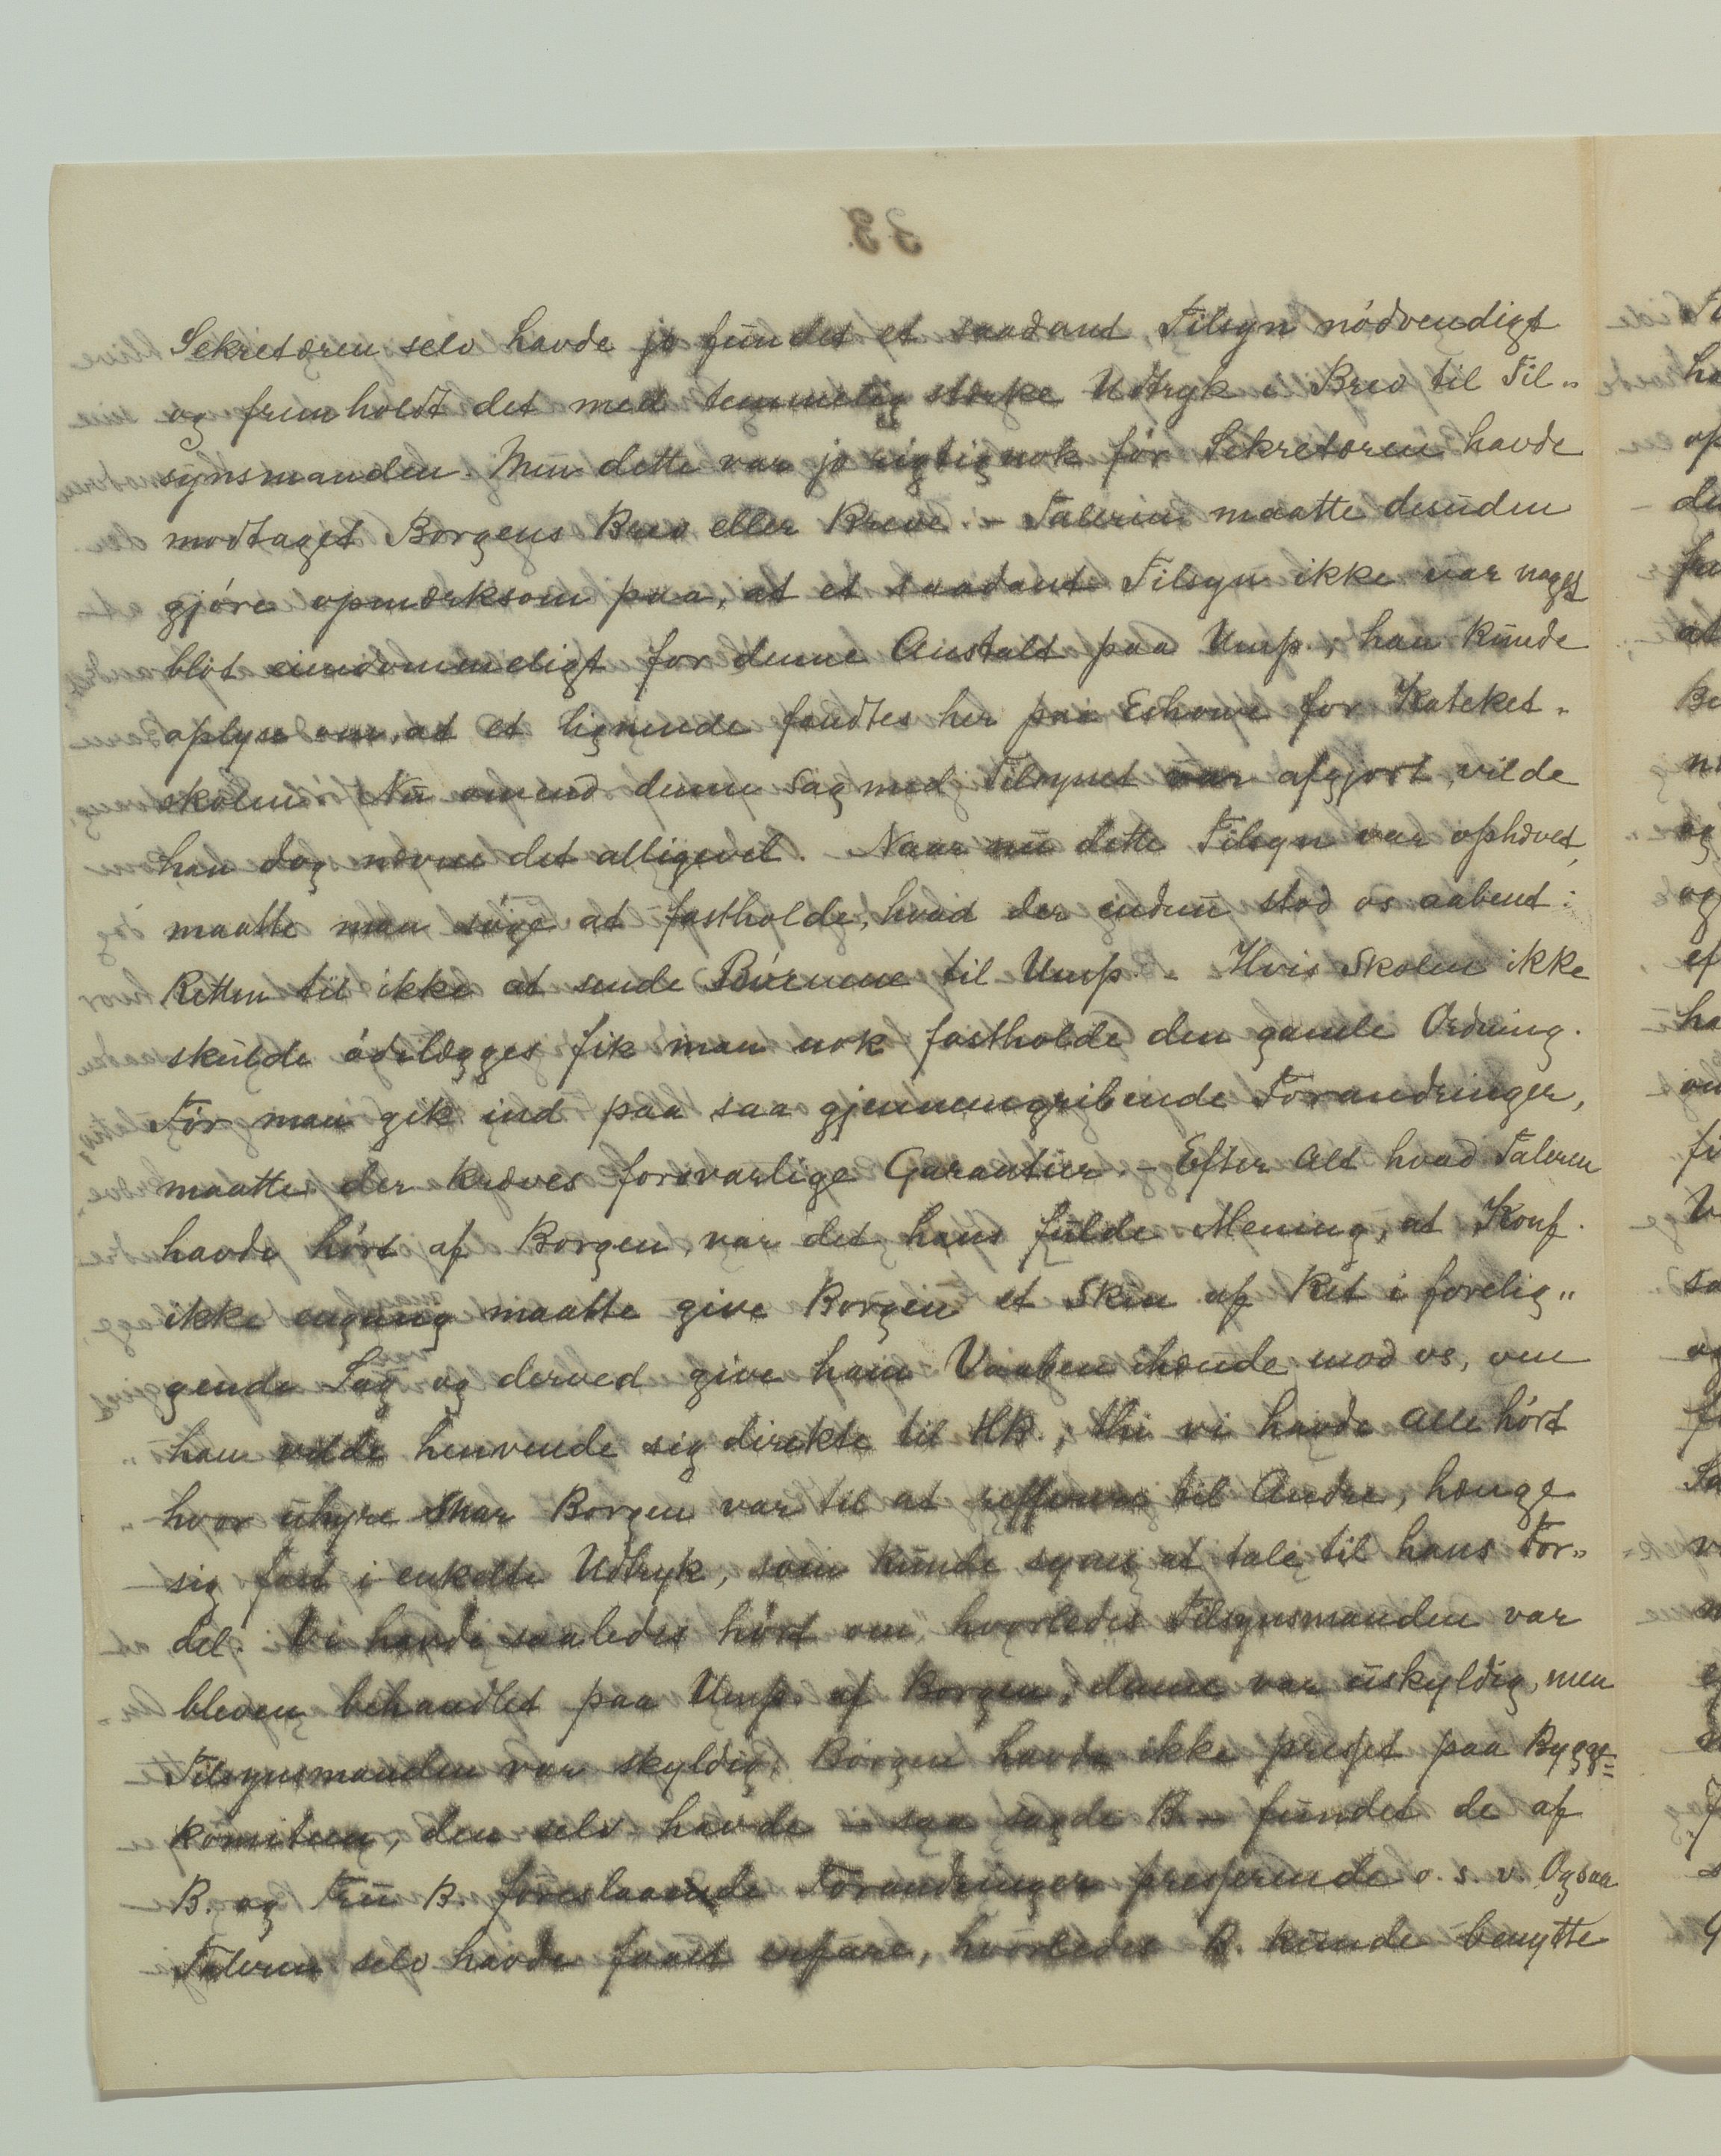 Sekretæren selv havde jo fundet et saadant Tilsyn nödvendigt
og fremholdt det med temmelig stærke Udtryk i Brev til Til„
synsmanden. Men dette var jo rigtignok för Sekretæren havde
modtaget Borgens Brev eller Breve. – Taleren maatte desuden
gjöre opmærksom paa, at et saadant Tilsyn ikke var noget
blot eiendommeligt for denne Anstalt paa Ump., han kunde
oplyse om, at et lignende fandtes her paa Eshowe for Kateket„
skolen. Nu omend denne Sag med Tilsynet var afgjort, vilde
han dog nævne det alligevel. Naar nu dette Tilsyn var ophævet,
maatte man söge at fastholde, hvad der endnu stod os aabent:
Retten til ikke at sende Börnene til Ump. – Hvis Skolen ikke
skulde ödelægges fik man nok fastholde den gamle Ordning.
För man gik ind paa saa gjennemgribende Forandringer,
maatte der kræves forsvarlige Garantier. – Efter alt hvad Taleren
havde hört af Borgen, var det hans fulde Mening, at Konf.
ikke engang maatte give Borgen et Skin af Ret i forelig„
gende Sag og derved give ham Vaaben ihænde mod os, om
han vilde henvende sig direkte til HB.; thi vi havde alle hört
hvor uhyre snar Borgen var til at refferere til Andre, hænge
sig fast i enkelte Udtryk, som kunde synes at tale til hans For„
del. Vi havde saaledes hört om, hvorledes Tilsynsmanden var
bleven behandlet paa Ump. af Borgen; denne var uskyldig, men
Tilsynsmanden var skyldig. Borgen havde ikke presset paa Bygge=
komiteen, den selv havde – saa sagde B. – fundet de af
B. og Fru B. foreslaaende Forandringer presserende o. s. v. Ogsaa
Taleren selv havde faaet erfare, hvorledes B. kunde benytte